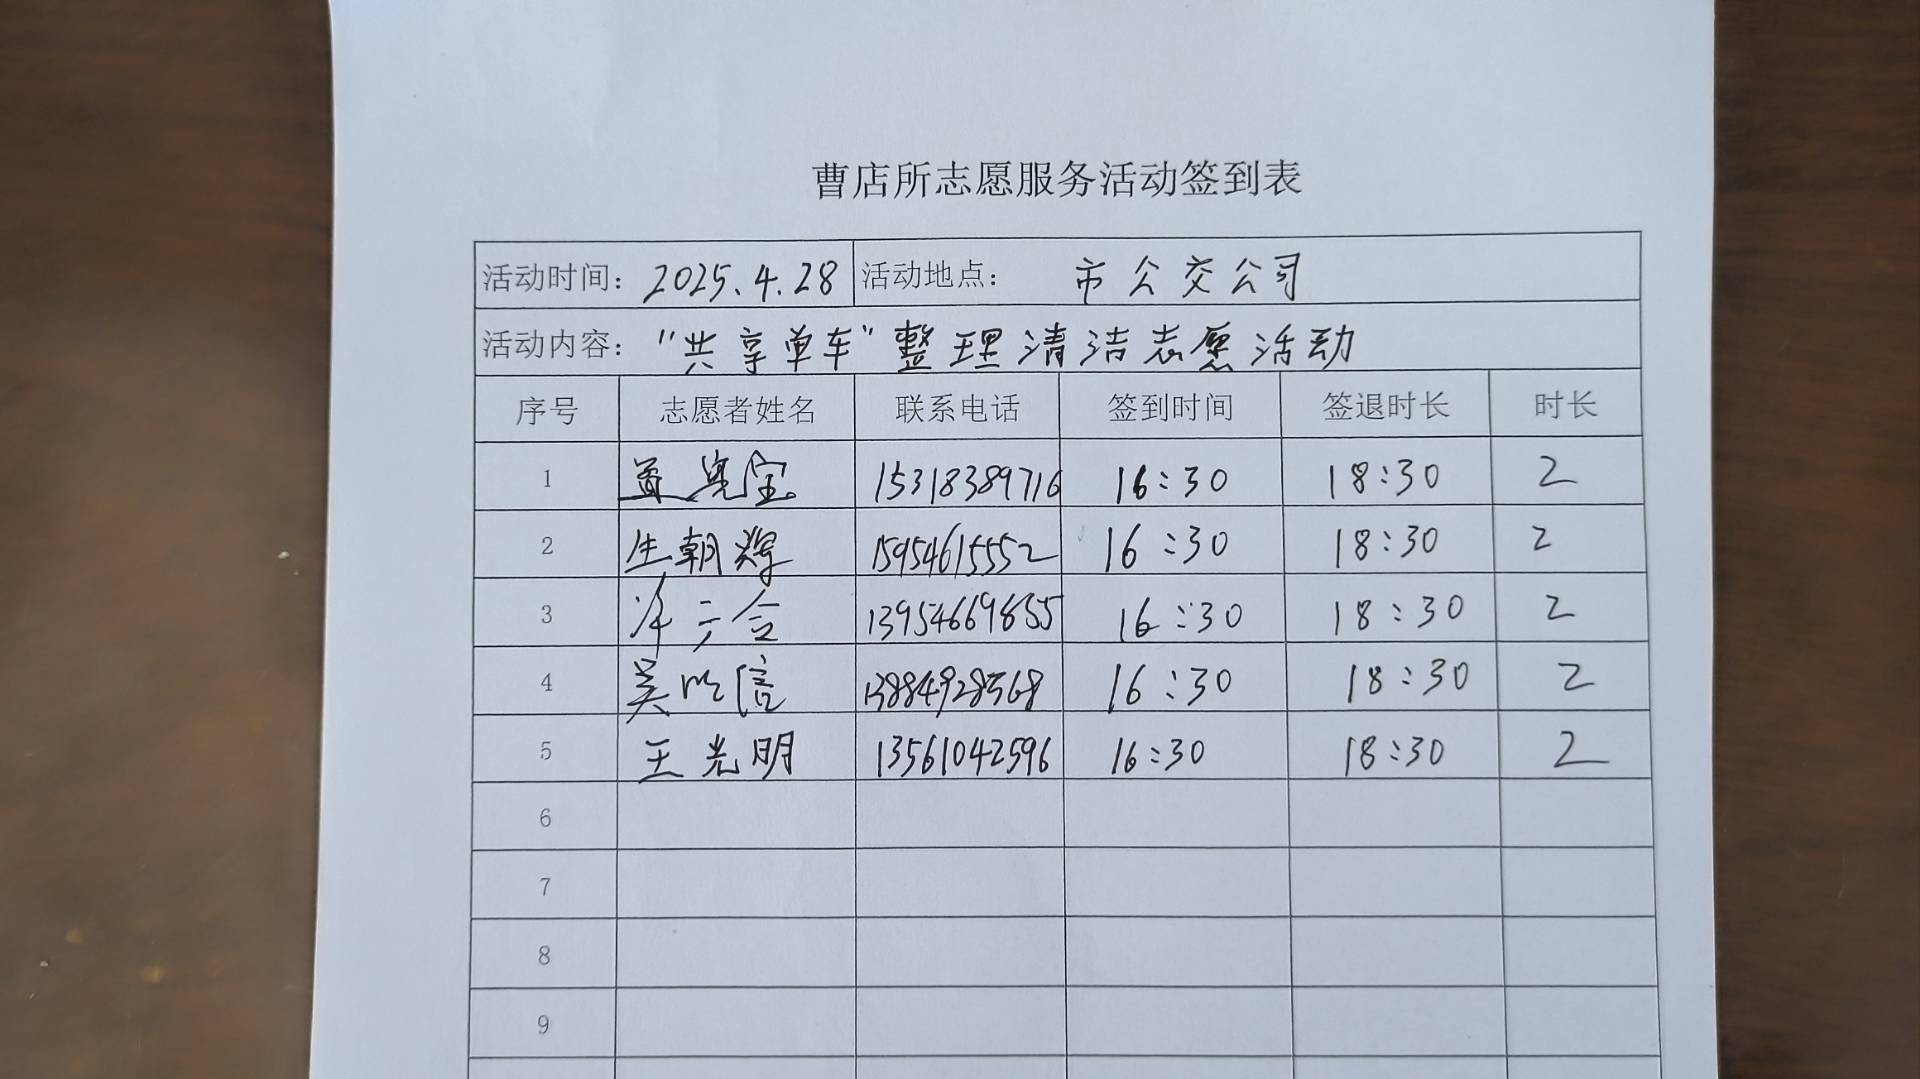 曹店所志愿服务活动签到表
活动时间： 2025.4.28 活动地点： 市公交公司
活动内容： “共享单车”整理清洁志愿活动
序号 志愿者姓名 联系电话 签到时间 签退时长 时长
1 15318389716 16:30 18:30 2
2 生朝辉 15954615552 16:30 18:30 2
3 13954669855 16:30 18:30 2
4 吴 信 13884928568 16:30 18:30 2
5 王光明 13561042596 16:30 18:30 2
6
7
8
9